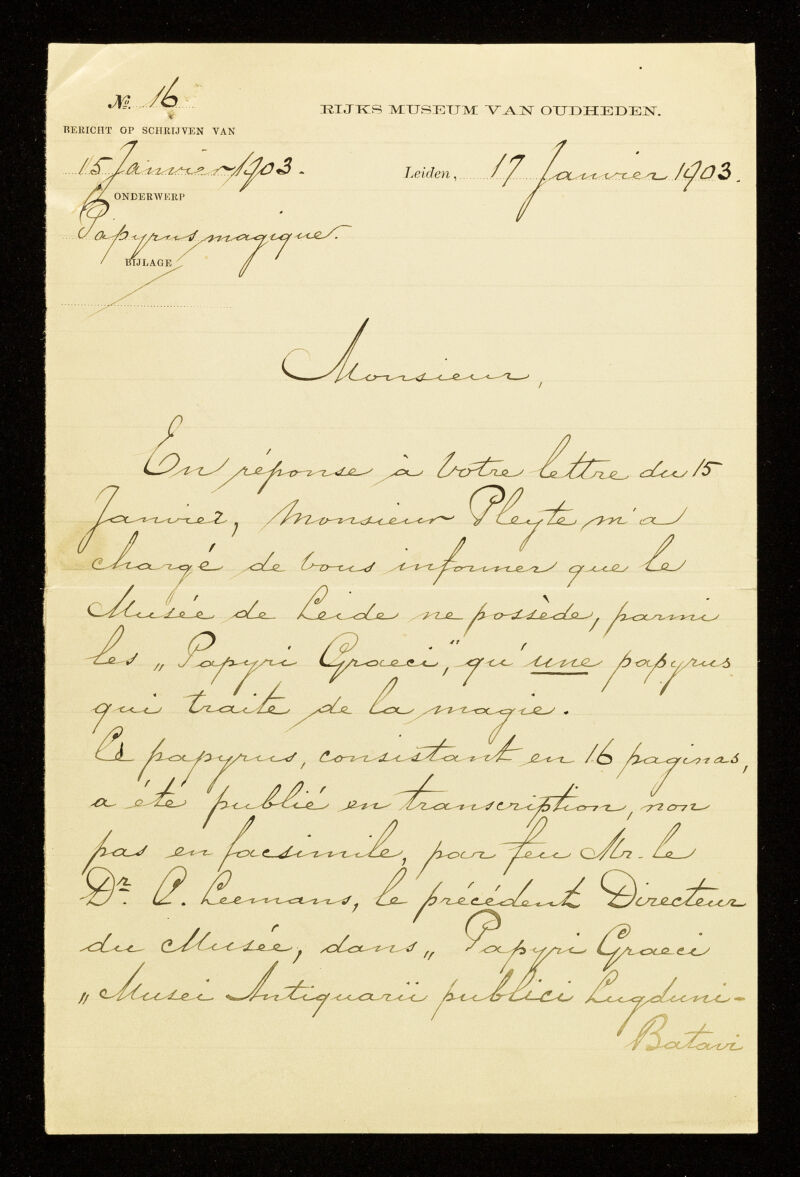 No. 16
RIJKS MUSEUM VAN OUDHEDEN.
BERICHT OP SCHRIJVEN VAN
15 Janvier 1903.
Leiden, 17 Janvier 1903.
ONDERWERP
Papyrus magique.
BIJLAGE
Monsieur,
En réponse à Votre lettre du 15
Janvier, Monsieur Pleyte m'a
chargé de Vous informer que le
Musée de Leide ne possède, parmi
les „Papyri Graeci," qu'une papyrus
qui traite de la magie.
Ce papyrus, consistant en 16 paginas,
a été publié en transcription, non
pas en facsimile, par feu Mr. le
Dr. C. Leemans, le précédent Directeur
du Musée, dans „Papyri Graeci
„Musei Antiquarii publici Lugduni-
Batavi